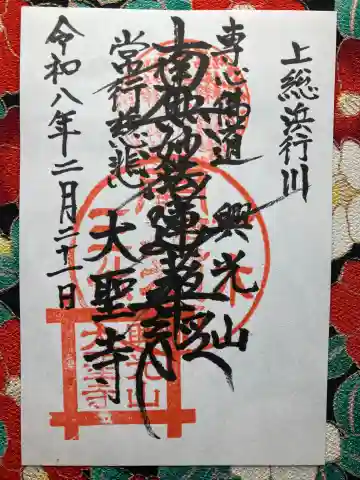 上総浜行川
専心佛道
興光山
南無妙法蓮華経
常行慈悲
大聖寺
令和八年二月二十一日